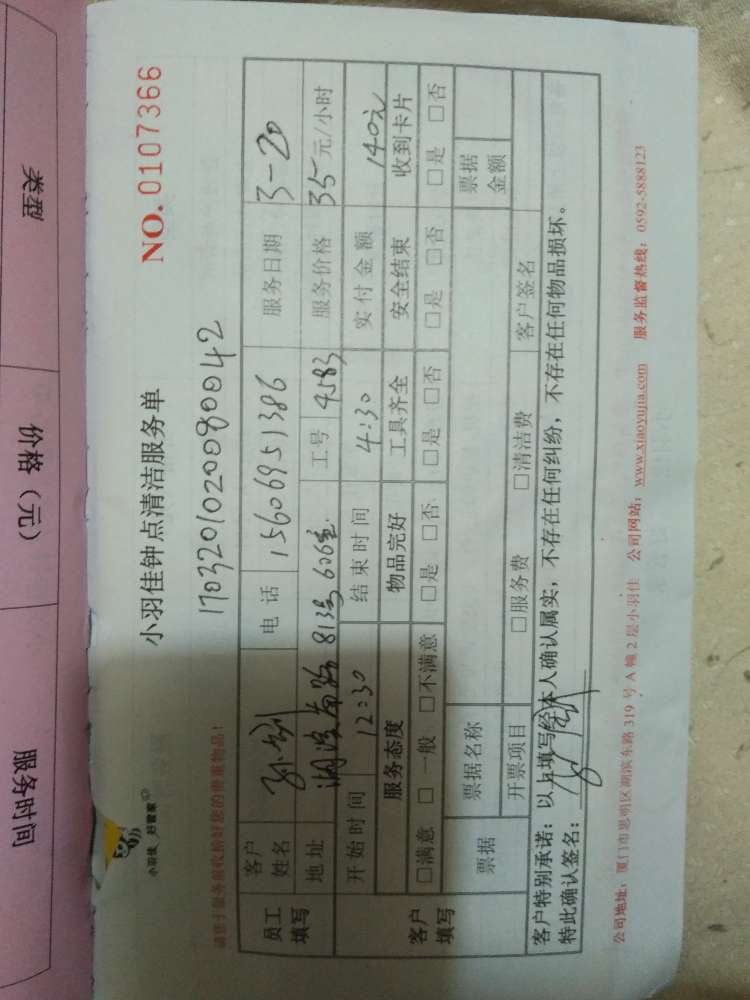 类型
价格（元）
服务时间
小羽佳 好管家
小羽佳钟点清洁服务单
NO.0107366
17032010200980042
请您于服务前收拾好您的贵重物品！
员工填写 客户姓名 电话 15606951386 服务日期 3-20
地址 湖滨南路 813号 606室 工号 4583 服务价格 35元/小时
开始时间 12:30 结束时间 4:30 实付金额 140元
客户填写 服务态度 物品完好 工具齐全 安全结束 收到卡片
□满意 □一般 □不满意 □是 □否 □是 □否 □是 □否 □是 □否
票据 票据名称 票据金额
开票项目 □服务费 □清洁费 客户签名
客户特别承诺：以上填写经本人确认属实，不存在任何纠纷，不存在任何物品损坏。
特此确认签名：
公司地址：厦门市思明区湖滨东路 319 号 A 幢 2 层小羽佳 公司网站：www.xiaoyujia.com 服务监督热线：0592-5888123